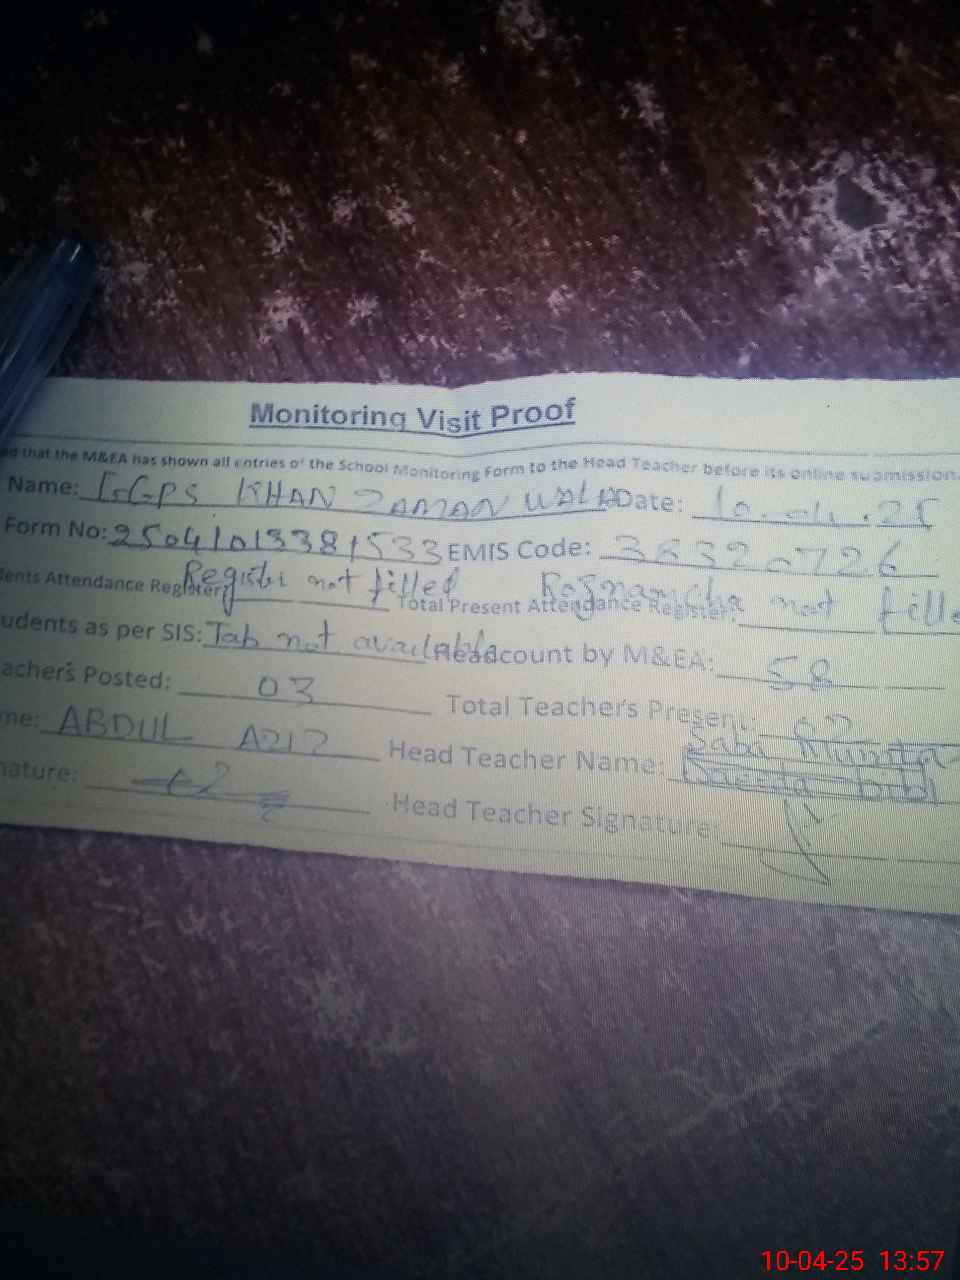 Monitoring Visit Proof
ed that the M&EA has shown all entries of the School Monitoring Form to the Head Teacher before its online submission.
Name: GGPS KHAN ZAMAN WALA Date: 10.04.25
Form No: 25041013381533 EMIS Code: 38320726
dents Attendance Register: Register not filled Total Present Attendance Register: Roznamcha not fille
udents as per SIS: Tab not available Headcount by M&EA: 58
achers Posted: 03 Total Teachers Present:
me: ABDUL AZIZ Head Teacher Name:
nature: Head Teacher Signature:
10-04-25 13:57